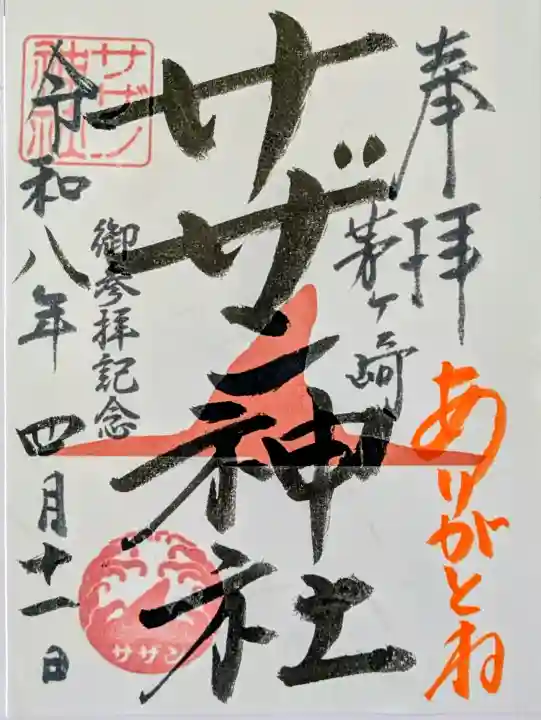 奉拝
茅ヶ崎
ありがとね
サザン神社
御参拝記念
令和八年四月十一日
サザン
神社
サザン